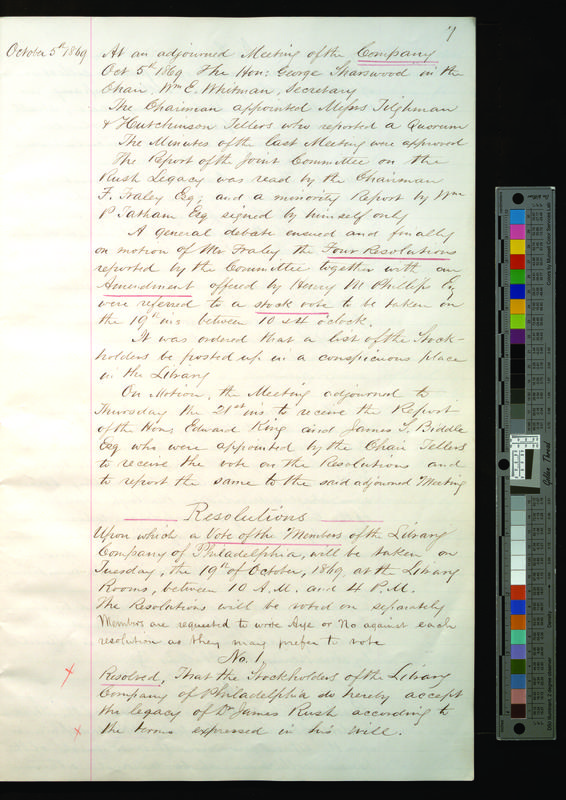 7
October 5th 1869
At an adjourned Meeting of the Company
Oct 5th 1869 The Hon: George Sharswood in the
Chair, Wm E. Whitman, Secretary
The Chairman appointed Messrs Tilghman
& Hutchinson Tellers who reported a Quorum
The Minutes of the last Meeting were approved
The Report of the Joint Committee on the
Rush Legacy was read by the Chairman
F. Fraley Esq, and a minority Report by Wm
P Tatham Esq signed by himself only
A general debate ensued and finally
on motion of Mr Fraley the Four Resolutions
reported by the Committee together with an
Amendment offered by Henry M Phillips Esq
were referred to a stock vote to be taken on
the 19th ins between 10 & 4 o'clock.
It was ordered that a list of the Stock-
holders be posted up in a conspicuous place
in the Library
On Motion, the Meeting adjourned to
Thursday the 21st ins to receive the Report
of the Hons Edward King and James S. Biddle
Esq who were appointed by the Chair Tellers
to receive the vote on the Resolutions and
to report the same to the said adjourned Meeting
Resolutions
Upon which a Vote of the Members of the Library
Company of Philadelphia, will be taken on
Tuesday, the 19th of October, 1869, at the Library
Rooms, between 10 A.M. and 4 P.M.
The Resolutions will be voted on separately
Members are requested to write Aye or No against each
resolution as they may prefer to vote
No. 1,
Resolved, That the Stockholders of the Library
Company of Philadelphia do hereby accept
the legacy of Dr James Rush according to
the terms expressed in his Will.